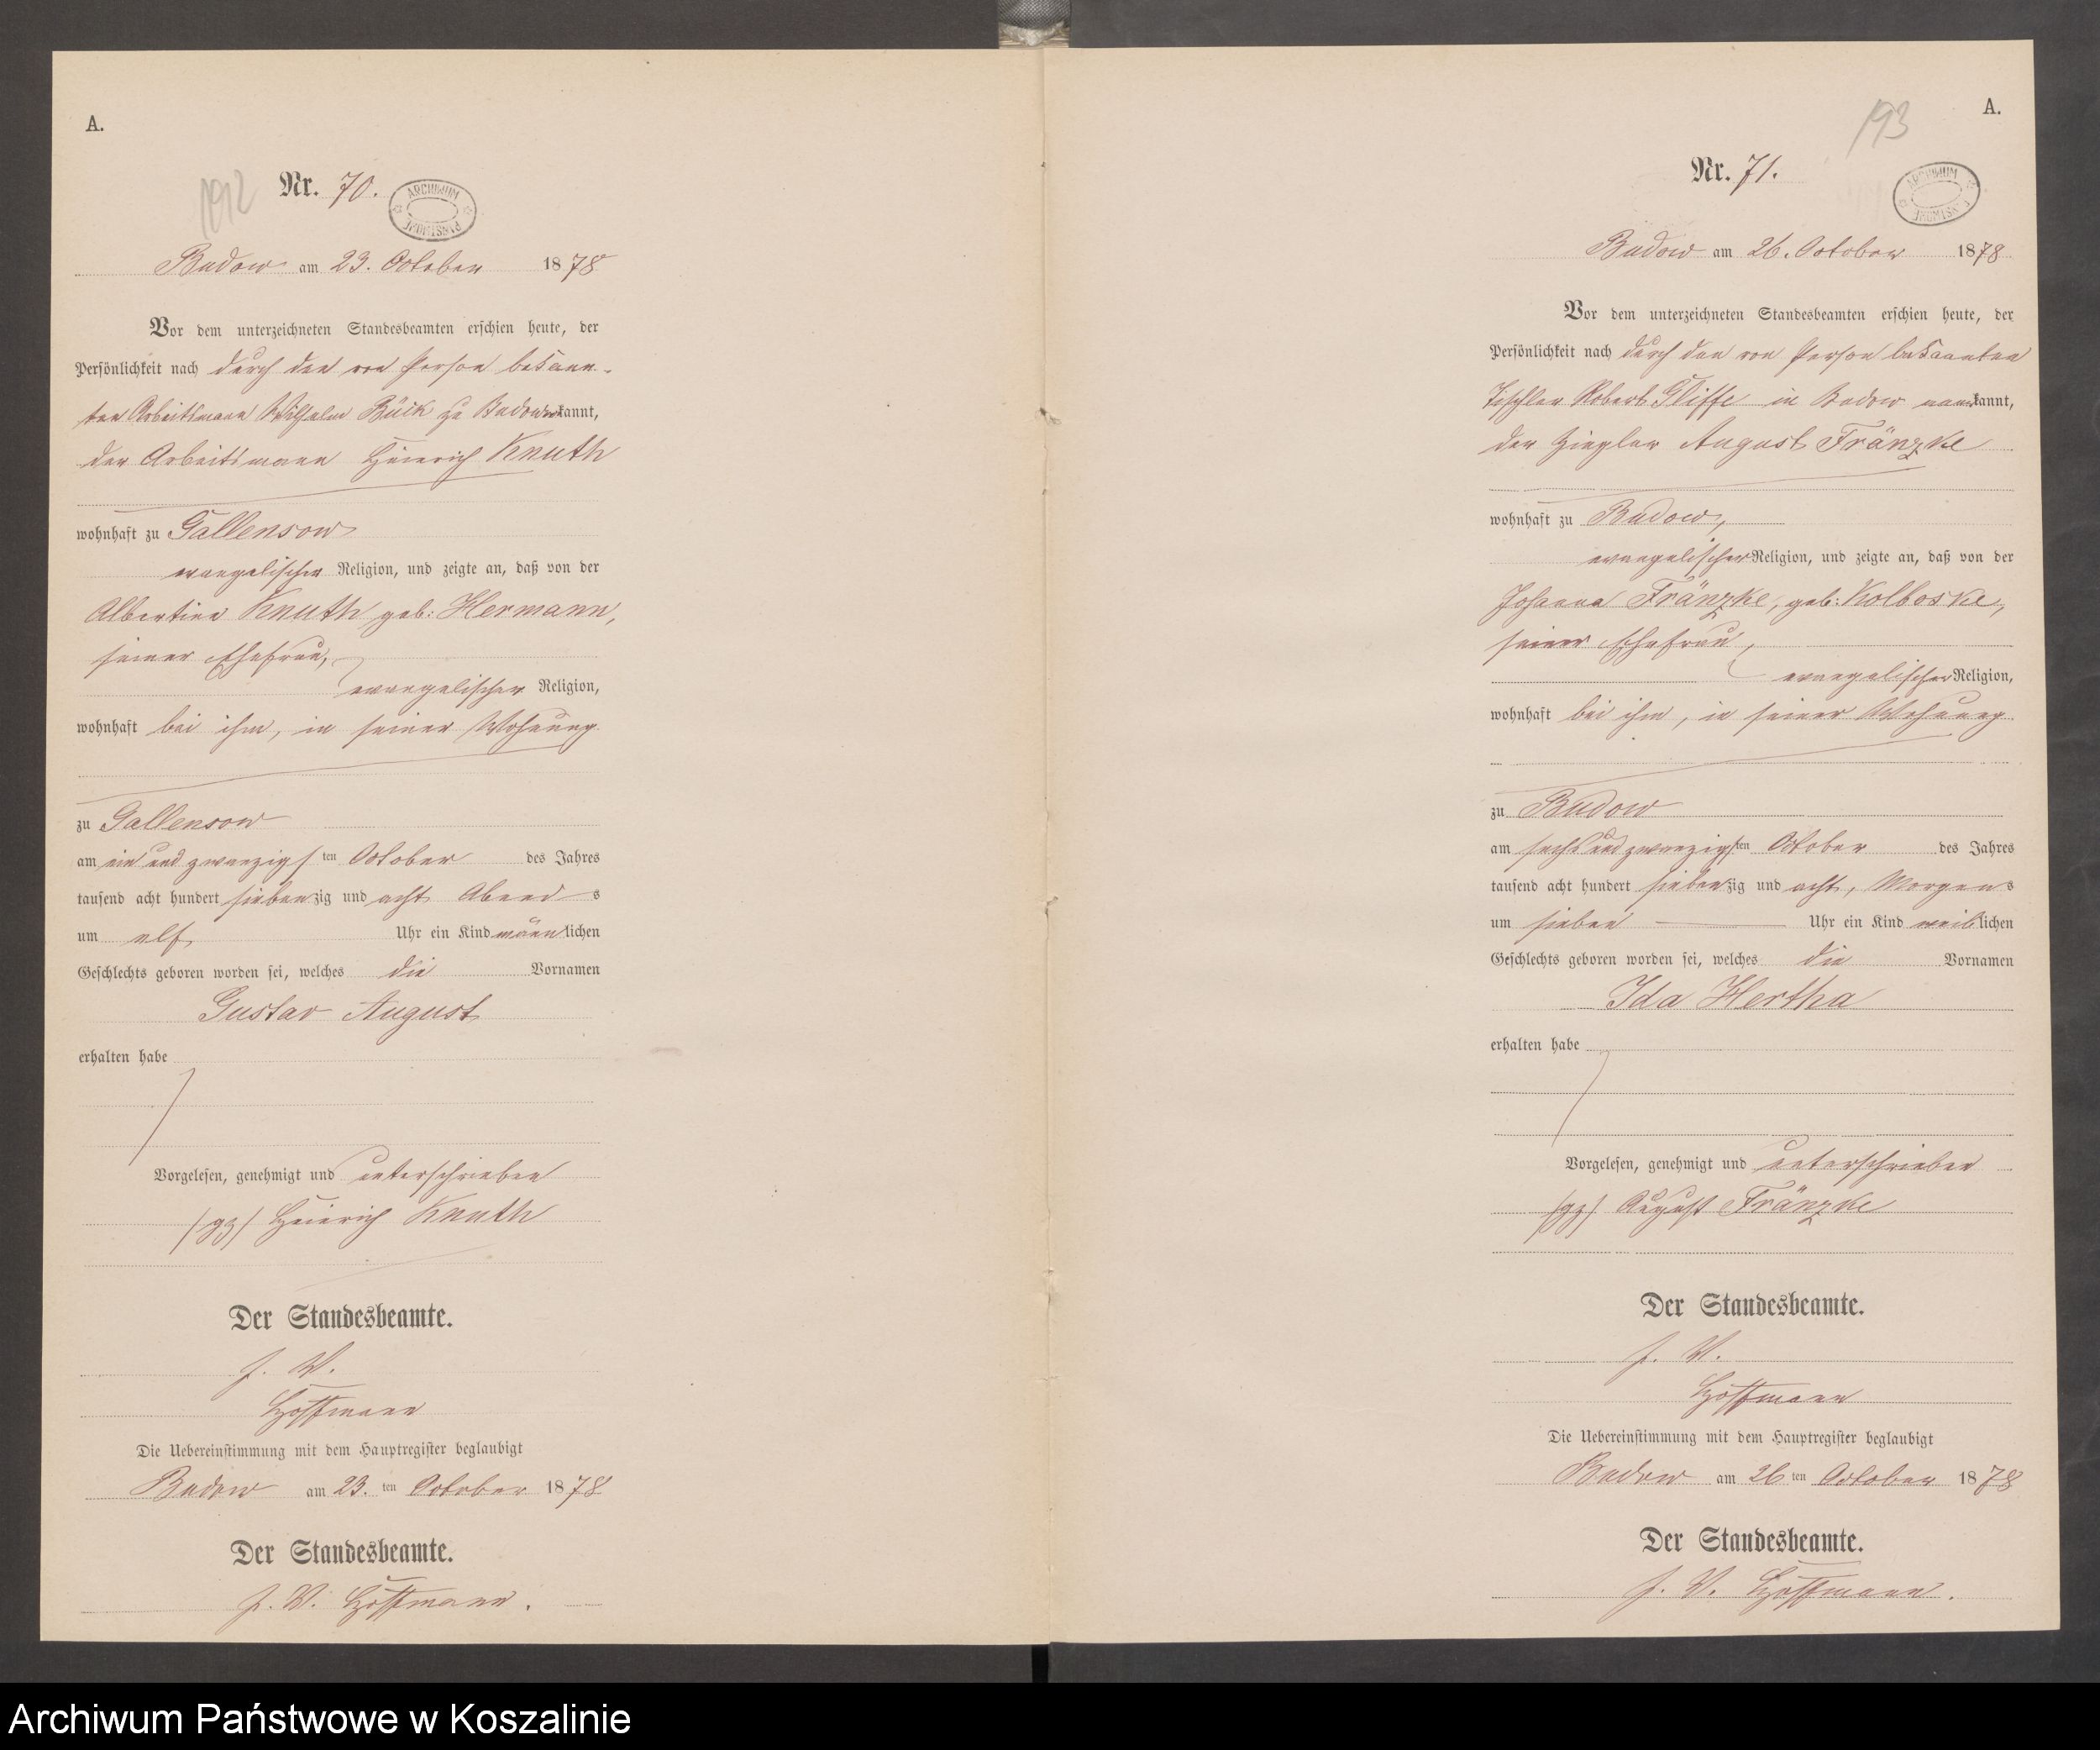 A.
192
Nr. 70.
ARCHIWUM PAŃSTWOWE
Budow am 23. October 1878
Vor dem unterzeichneten Standesbeamten erschien heute, der
Persönlichkeit nach durch den von Person bekann-
ten Arbeitsmann Wilhelm Bück zu Budow kannt,
der Arbeitsmann Heinrich Knuth
wohnhaft zu Gallensow
evangelischer Religion, und zeigte an, daß von der
Albertine Knuth geb: Hermann,
seiner Ehefrau,
evangelischer Religion,
wohnhaft bei ihm, in seiner Wohnung
zu Gallensow
am ein und zwanzigsten October des Jahres
tausend acht hundert siebenzig und acht Abends
um elf Uhr ein Kind männlichen
Geschlechts geboren worden sei, welches die Vornamen
Gustav August
erhalten habe
Vorgelesen, genehmigt und unterschrieben
(gz) Heinrich Knuth
Der Standesbeamte.
J. V.
Hoffmann
Die Uebereinstimmung mit dem Hauptregister beglaubigt
Budow am 23. ten October 1878
Der Standesbeamte.
J. V. Hoffmann.
193
A.
Nr. 71.
ARCHIWUM PAŃSTWOWE
Budow am 26. October 1878
Vor dem unterzeichneten Standesbeamten erschien heute, der
Persönlichkeit nach durch den von Person bekannten
Tischler Robert Gliffe in Budow kannt,
der Ziegler August Fränzke
wohnhaft zu Budow,
evangelischer Religion, und zeigte an, daß von der
Johanna Fränzke, geb: Kolboske,
seiner Ehefrau
evangelischer Religion,
wohnhaft bei ihm, in seiner Wohnung
zu Budow
am sechs und zwanzigsten October des Jahres
tausend acht hundert siebenzig und acht, Morgens
um sieben Uhr ein Kind weiblichen
Geschlechts geboren worden sei, welches die Vornamen
Ida Hertha
erhalten habe
Vorgelesen, genehmigt und unterschrieben
(gz) August Fränzke
Der Standesbeamte.
J. V.
Hoffmann
Die Uebereinstimmung mit dem Hauptregister beglaubigt
Budow am 26 ten October 1878
Der Standesbeamte.
J. V. Hoffmann.
Archiwum Państwowe w Koszalinie